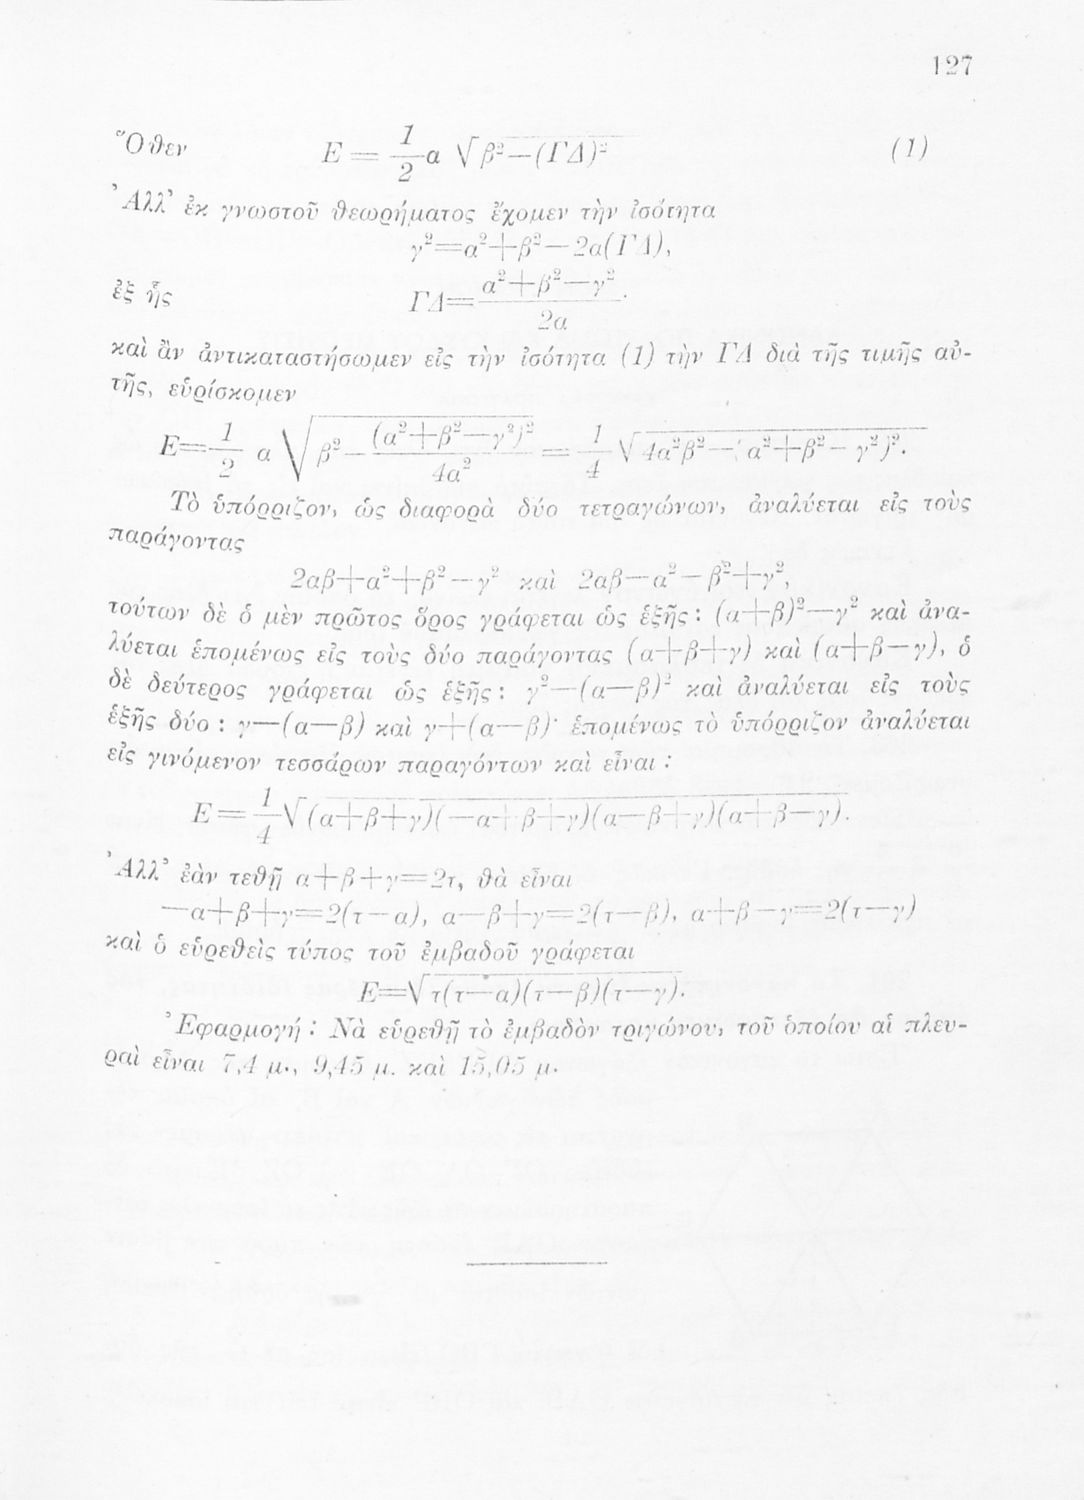 127
Ὅθεν E = 1/2 α √β²—(ΓΔ)² (1)
Ἀλλ' ἐκ γνωστοῦ θεωρήματος ἔχομεν τὴν ἰσότητα
γ²=α²+β²—2α(ΓΔ),
ἐξ ἧς ΓΔ= α²+β²—γ² / 2α .
καὶ ἂν ἀντικαταστήσωμεν εἰς τὴν ἰσότητα (1) τὴν ΓΔ διὰ τῆς τιμῆς αὐ-
τῆς, εὑρίσκομεν
E= 1/2 α √β²— (α²+β²—γ²)² / 4α² = 1/4 √4α²β²—(α²+β²—γ²)².
Τὸ ὑπόρριζον, ὡς διαφορὰ δύο τετραγώνων, ἀναλύεται εἰς τοὺς
παράγοντας
2αβ+α²+β²—γ² καὶ 2αβ—α²—β²+γ²,
τούτων δὲ ὁ μὲν πρῶτος ὅρος γράφεται ὡς ἑξῆς: (α+β)²—γ² καὶ ἀνα-
λύεται ἑπομένως εἰς τοὺς δύο παράγοντας (α+β+γ) καὶ (α+β—γ), ὁ
δὲ δεύτερος γράφεται ὡς ἑξῆς: γ²—(α—β)² καὶ ἀναλύεται εἰς τοὺς
ἑξῆς δύο: γ—(α—β) καὶ γ+(α—β)· ἑπομένως τὸ ὑπόρριζον ἀναλύεται
εἰς γινόμενον τεσσάρων παραγόντων καὶ εἶναι:
E= 1/4 √(α+β+γ)(—α+β+γ)(α—β+γ)(α+β—γ).
Ἀλλ' ἐὰν τεθῇ α+β+γ=2τ, θὰ εἶναι
—α+β+γ=2(τ—α), α—β+γ=2(τ—β), α+β—γ=2(τ—γ)
καὶ ὁ εὑρεθεὶς τύπος τοῦ ἐμβαδοῦ γράφεται
E=√τ(τ—α)(τ—β)(τ—γ).
Ἐφαρμογή: Νὰ εὑρεθῇ τὸ ἐμβαδὸν τριγώνου, τοῦ ὁποίου αἱ πλευ-
ραὶ εἶναι 7,4 μ., 9,45 μ. καὶ 15,05 μ.